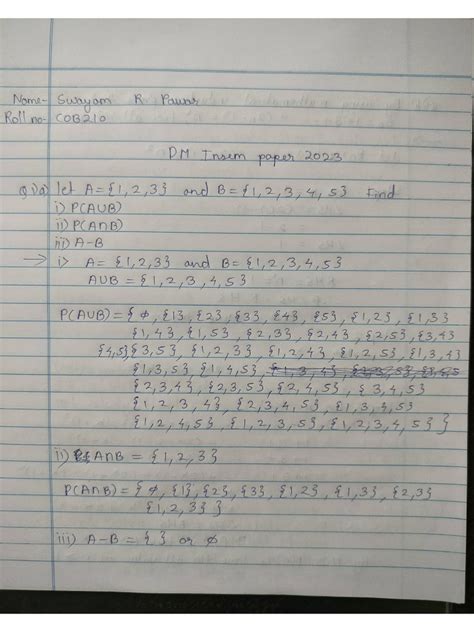 Name- Swayam R Pawar
Roll no- COB210
DM Insem paper 2023
Q1)a) let A={1,2,3} and B={1,2,3,4,5} Find
i) P(A∪B)
ii) P(A∩B)
iii) A-B
→ i> A= {1,2,3} and B= {1,2,3,4,5}
A∪B = {1,2,3,4,5}
P(A∪B) = { ϕ, {1}, {2}, {3}, {4}, {5}, {1,2}, {1,3}
{1,4}, {1,5}, {2,3}, {2,4}, {2,5}, {3,4}
{4,5} {3,5}, {1,2,3}, {1,2,4}, {1,2,5}, {1,3,4}
{1,3,5}, {1,4,5},
{2,3,4}, {2,3,5}, {2,4,5}, {3,4,5}
{1,2,3,4}, {2,3,4,5}, {1,3,4,5}
{1,2,4,5}, {1,2,3,5}, {1,2,3,4,5} }
ii) A∩B = {1,2,3}
P(A∩B) = { ϕ, {1}, {2}, {3}, {1,2}, {1,3}, {2,3}
{1,2,3} }
iii) A-B = { } or ϕ